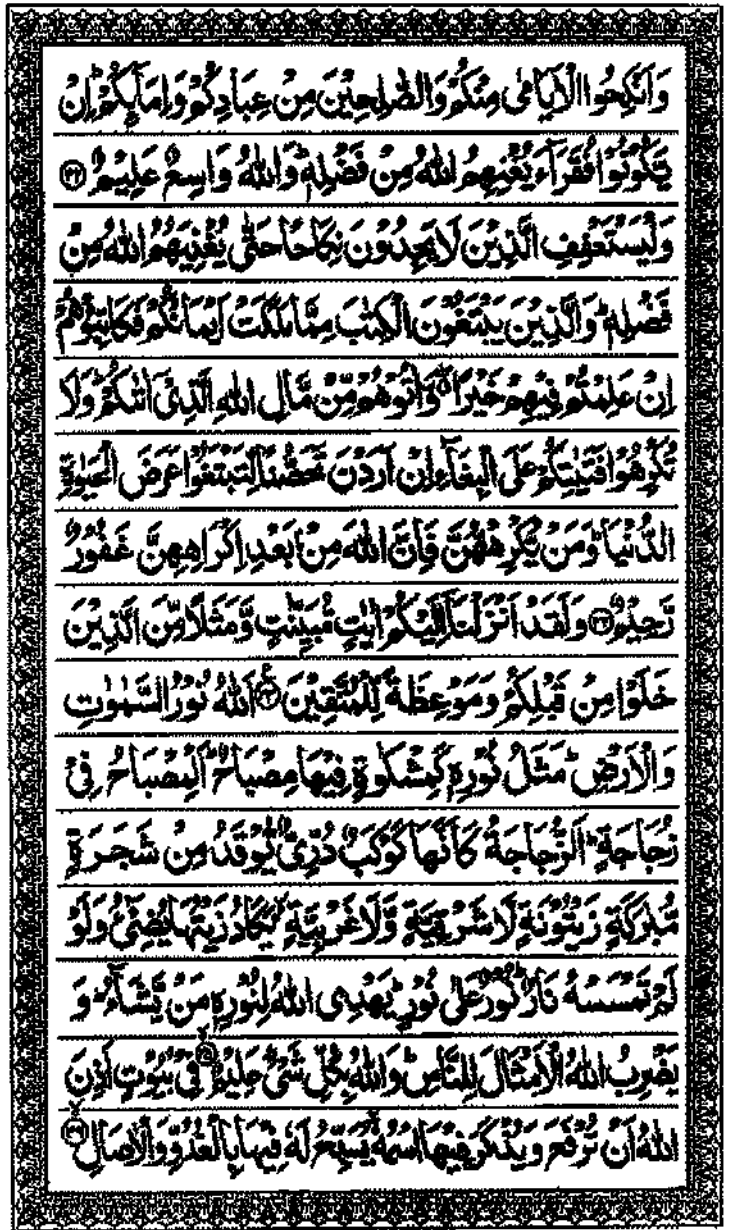 وَاَنْكِحُوا الْاَيَامٰى مِنْكُمْ وَالصّٰلِحِيْنَ مِنْ عِبَادِكُمْ وَاِمَآىِٕكُمْ ؕ اِنْ
يَّكُوْنُوْا فُقَرَآءَ يُغْنِهِمُ اللّٰهُ مِنْ فَضْلِهٖ ؕ وَاللّٰهُ وَاسِعٌ عَلِيْمٌ ۝۳۲
وَلْيَسْتَعْفِفِ الَّذِيْنَ لَا يَجِدُوْنَ نِكَاحًا حَتّٰى يُغْنِيَهُمُ اللّٰهُ مِنْ
فَضْلِهٖ ؕ وَالَّذِيْنَ يَبْتَغُوْنَ الْكِتٰبَ مِمَّا مَلَكَتْ اَيْمَانُكُمْ فَكَاتِبُوْهُمْ
اِنْ عَلِمْتُمْ فِيْهِمْ خَيْرًا ۖ وَّاٰتُوْهُمْ مِّنْ مَّالِ اللّٰهِ الَّذِيْٓ اٰتٰىكُمْ ؕ وَلَا
تُكْرِهُوْا فَتَيٰتِكُمْ عَلَى الْبِغَآءِ اِنْ اَرَدْنَ تَحَصُّنًا لِّتَبْتَغُوْا عَرَضَ الْحَيٰوةِ
الدُّنْيَا ؕ وَمَنْ يُّكْرِهْهُّنَّ فَاِنَّ اللّٰهَ مِنْۢ بَعْدِ اِكْرَاهِهِنَّ غَفُوْرٌ
رَّحِيْمٌ ۝۳۳ وَلَقَدْ اَنْزَلْنَآ اِلَيْكُمْ اٰيٰتٍ مُّبَيِّنٰتٍ وَّمَثَلًا مِّنَ الَّذِيْنَ
خَلَوْا مِنْ قَبْلِكُمْ وَمَوْعِظَةً لِّلْمُتَّقِيْنَ ۝۳۴ۧ اَللّٰهُ نُوْرُ السَّمٰوٰتِ
وَالْاَرْضِ ؕ مَثَلُ نُوْرِهٖ كَمِشْكٰوةٍ فِيْهَا مِصْبَاحٌ ؕ اَلْمِصْبَاحُ فِيْ
زُجَاجَةٍ ؕ اَلزُّجَاجَةُ كَاَنَّهَا كَوْكَبٌ دُرِّيٌّ يُّوْقَدُ مِنْ شَجَرَةٍ
مُّبٰرَكَةٍ زَيْتُوْنَةٍ لَّا شَرْقِيَّةٍ وَّلَا غَرْبِيَّةٍ ۙ يَّكَادُ زَيْتُهَا يُضِيْٓءُ وَلَوْ
لَمْ تَمْسَسْهُ نَارٌ ؕ نُوْرٌ عَلٰى نُوْرٍ ؕ يَهْدِي اللّٰهُ لِنُوْرِهٖ مَنْ يَّشَآءُ ؕ وَ
يَضْرِبُ اللّٰهُ الْاَمْثَالَ لِلنَّاسِ ؕ وَاللّٰهُ بِكُلِّ شَيْءٍ عَلِيْمٌ ۝۳۵ۙ فِيْ بُيُوْتٍ اَذِنَ
اللّٰهُ اَنْ تُرْفَعَ وَيُذْكَرَ فِيْهَا اسْمُهٗ ۙ يُسَبِّحُ لَهٗ فِيْهَا بِالْغُدُوِّ وَالْاٰصَالِ ۝۳۶ۙ